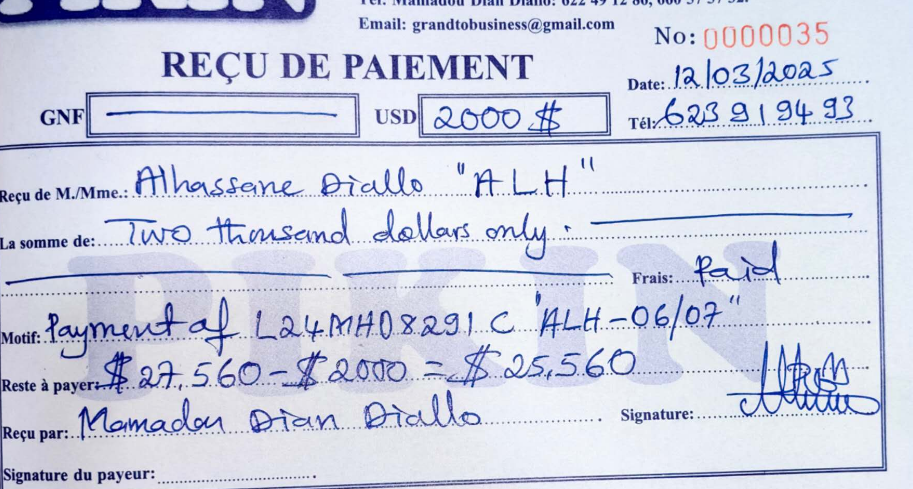 PIKIN
Tel: Mamadou Dian Diallo: 622 49 12 86,
Email: grandtobusiness@gmail.com
No: 0000035
REÇU DE PAIEMENT
Date: 12/03/2025
GNF
USD 2000 $
Tél: 623 91 94 93
Reçu de M./Mme.: Alhassane Diallo "ALH"
La somme de: Two thousand dollars only.
Frais: Paid
Motif: Payment of L24MH08291C "ALH-06/07"
Reste à payer: $ 27,560 - $ 2000 = $ 25,560
Reçu par: Mamadou Dian Diallo
Signature:
Signature du payeur:
PIKIN